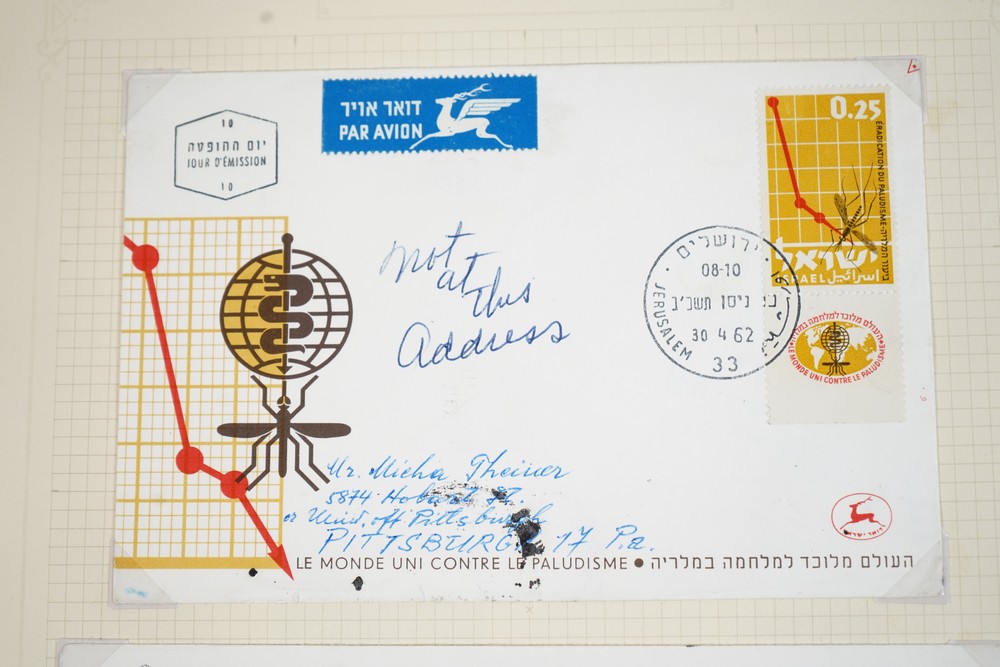 10
יום ההופעה
JOUR D'ÉMISSION
10
דואר אויר
PAR AVION
0.25
ERADICATION DU PALUDISME-ביעור המלריה
ישראל
ISRAEL إسرائيل
העולם מלוכד למלחמה במלריה
LE MONDE UNI CONTRE LE PALUDISME
ירושלים
08-10
ניסן תשכ"ב
30 4 62
JERUSALEM
33
not
at
this
Address
Mr. Micha Theiner
5874 Hobart St.
or Univ. off Pittsburgh
PITTSBURG 17 Pa.
דואר ישראל
LE MONDE UNI CONTRE LE PALUDISME • העולם מלוכד למלחמה במלריה